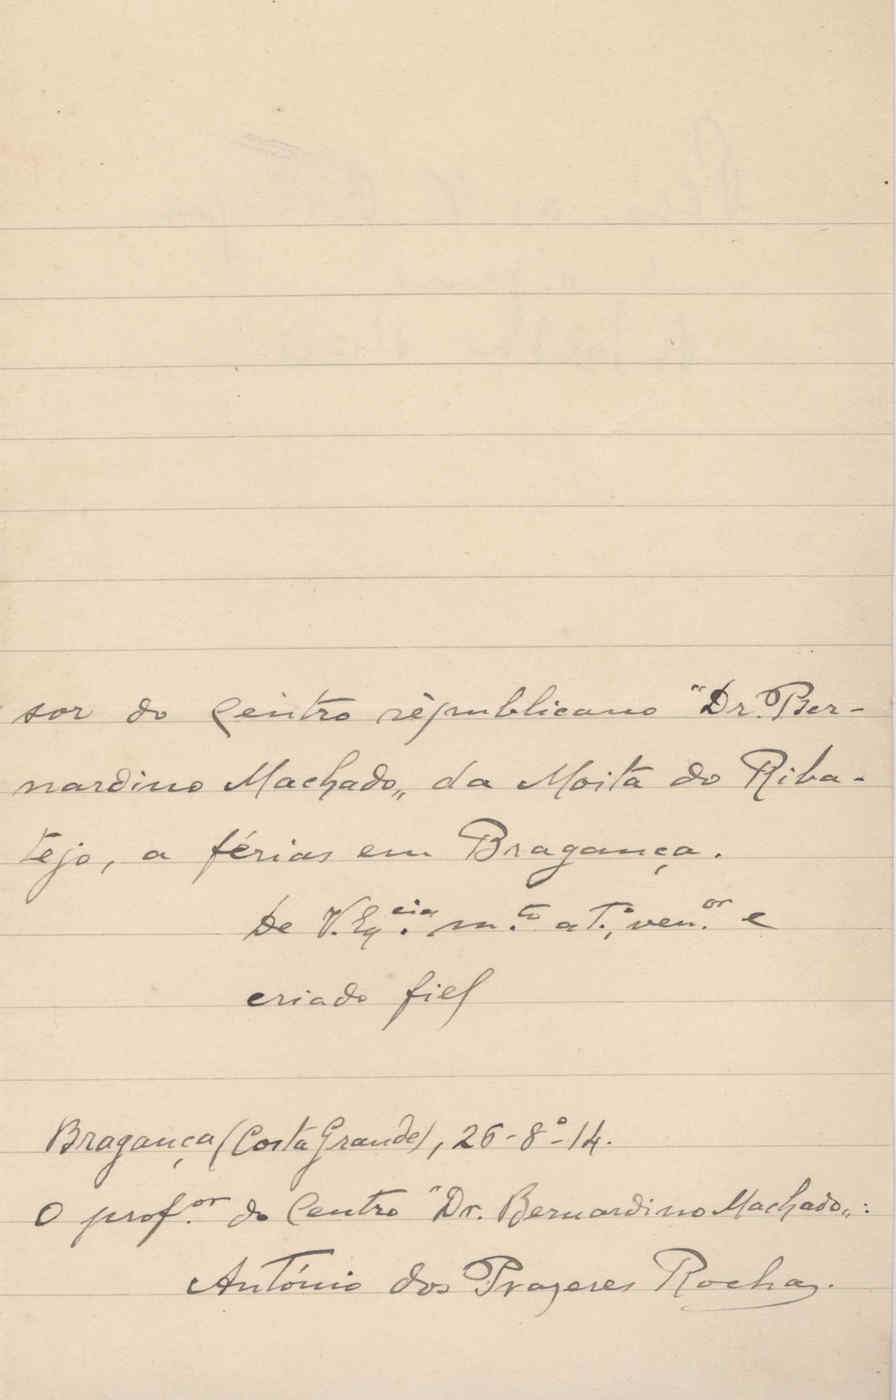 sor do Centro rèpublicano "Dr. Ber-
nardino Machado„ da Moita do Riba-
tejo, a férias em Bragança.
De V. Ex.cia m.to at.o, ven.or e
criado fiel
Bragança (Costa Grande), 26-8.º-14.
O prof.or do Centro "Dr. Bernardino Machado„:
António dos Prazeres Rocha.